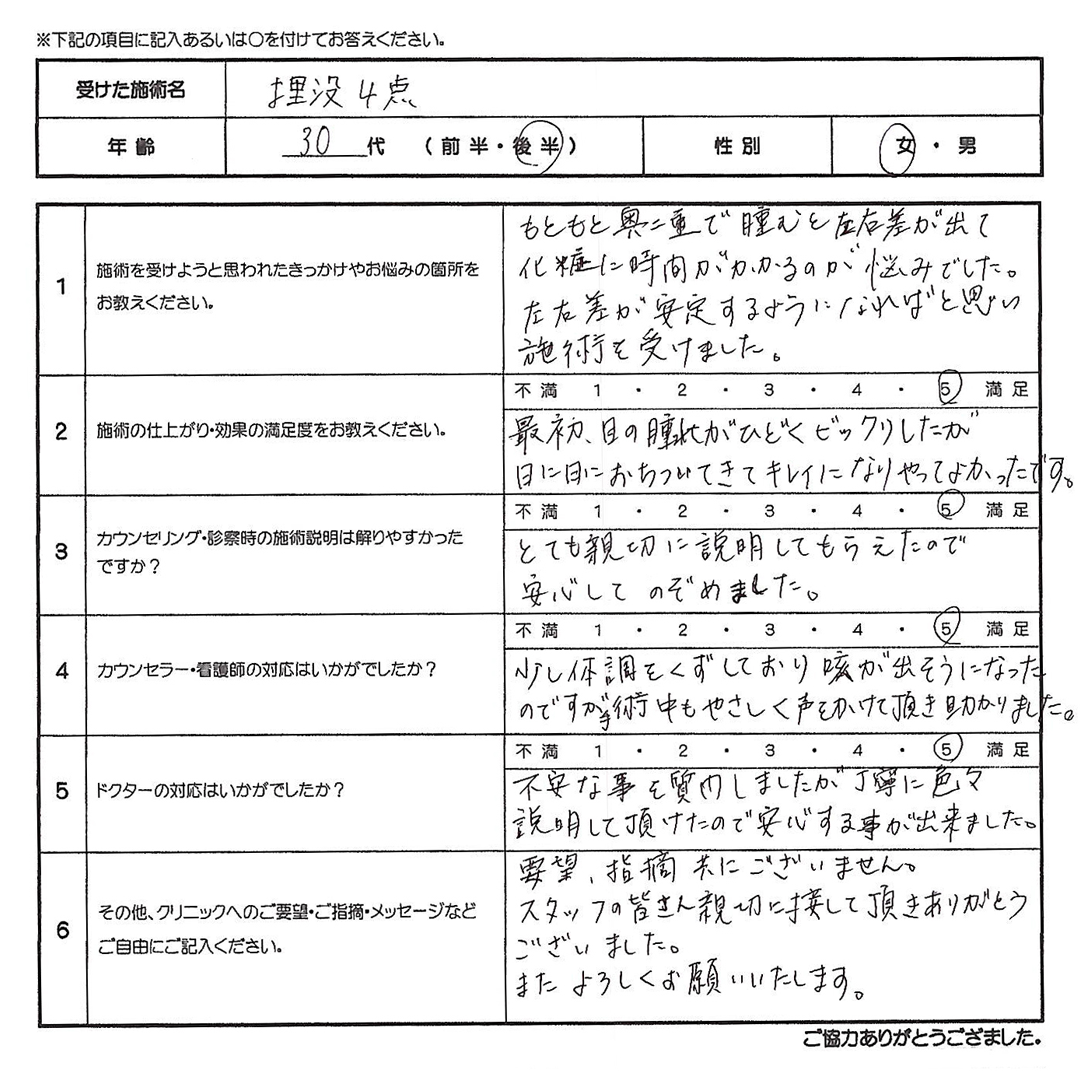 ※下記の項目に記入あるいは〇を付けてお答えください。
受けた施術名 埋没4点
年齢 30代 (前半・後半) 性別 女・男
もともと奥二重で腫むと左右差が出て
化粧に時間がかかるのが悩みでした。
1 施術を受けようと思われたきっかけやお悩みの箇所を
お教えください。
左右差が安定するようになればと思い
施術を受けました。
不満 1・2・3・4・5 満足
2 施術の仕上がり・効果の満足度をお教えください。
最初、目の腫れがひどくビックリしたが
日に日におちついてきてキレイになりやってよかったです。
不満 1・2・3・4・5 満足
3 カウンセリング・診察時の施術説明は解りやすかった
ですか？
とても親切に説明してもらえたので
安心してのぞめました。
不満 1・2・3・4・5 満足
4 カウンセラー・看護師の対応はいかがでしたか？
少し体調をくずしており咳が出そうになった
のですが手術中もやさしく声をかけて頂き助かりました。
不満 1・2・3・4・5 満足
5 ドクターの対応はいかがでしたか？
不安な事を質問しましたが丁寧に色々
説明して頂けたので安心する事が出来ました。
要望、指摘共にございません。
6 その他、クリニックへのご要望・ご指摘・メッセージなど
ご自由にご記入ください。
スタッフの皆さん親切に接して頂きありがとう
ございました。
またよろしくお願いいたします。
ご協力ありがとうござました。